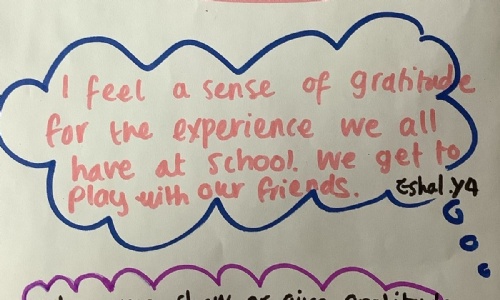 I feel a sense of gratitude
for the experience we all
have at school. We get to
play with our friends. Eshal.Y4
show or give gratitude